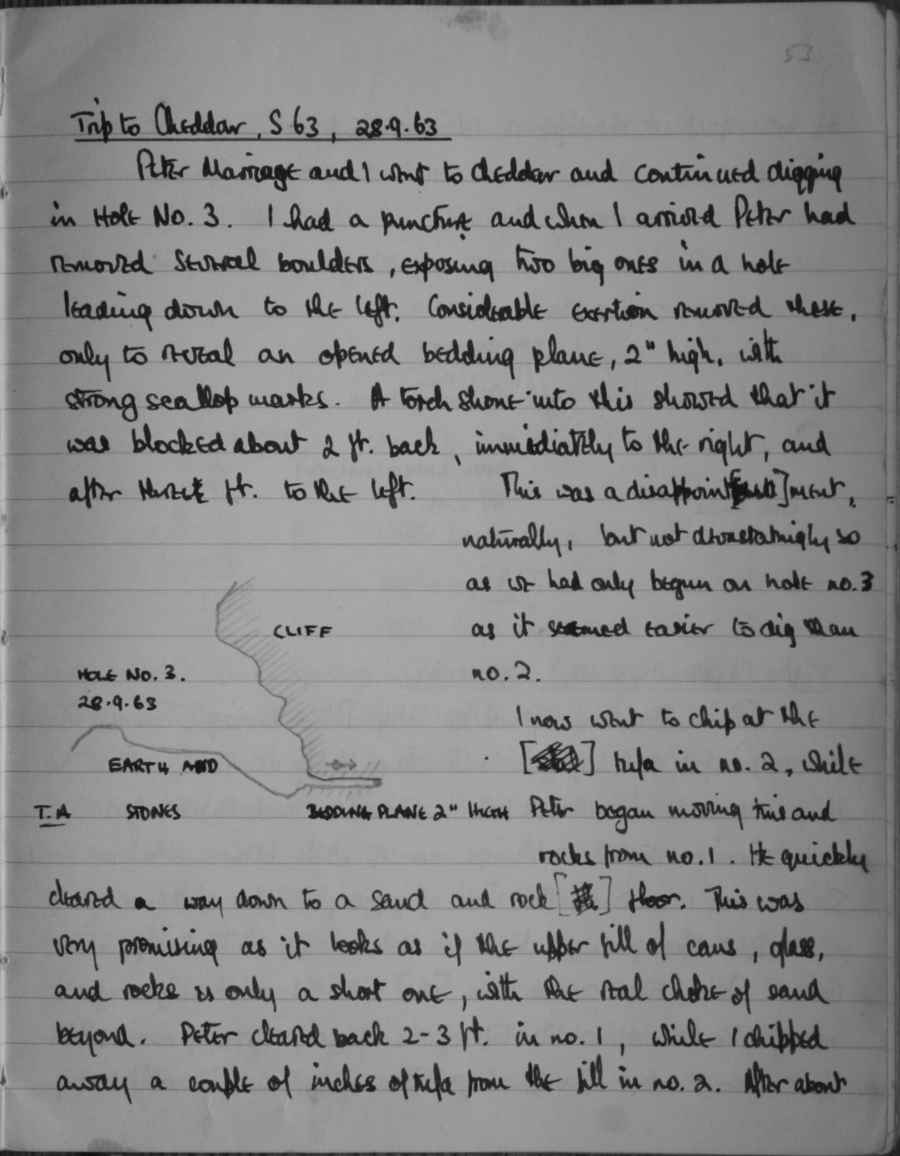 53
Trip to Cheddar, S 63, 28.9.63
Peter Marriage and I went to Cheddar and continued digging
in Hole No. 3. I had a puncture and when I arrived Peter had
removed several boulders, exposing two big ones in a hole
leading down to the left. Considerable exertion removed these,
only to reveal an opened bedding plane, 2" high, with
strong scallop marks. A torch shone into this showed that it
was blocked about 2 ft. back, immediately to the right, and
after three ft. to the left. This was a disappoint[]ment,
naturally, but not devastatingly so
as we had only begun on hole no.3
as it seemed easier to dig than
no.2.
CLIFF
HOLE NO. 3.
28.9.63
EARTH AND
STONES
T.A
BEDDING PLANE 2" HIGH
I now went to chip at the
[] tufa in no. 2, while
Peter began moving tins and
rocks from no.1. He quickly
cleared a way down to a sand and rock [] floor. This was
very promising as it looks as if the upper fill of cans, glass,
and rocks is only a short one, with the real choke of sand
beyond. Peter cleared back 2-3 ft. in no. 1, while I chipped
away a couple of inches of tufa from the fill in no. 2. After about